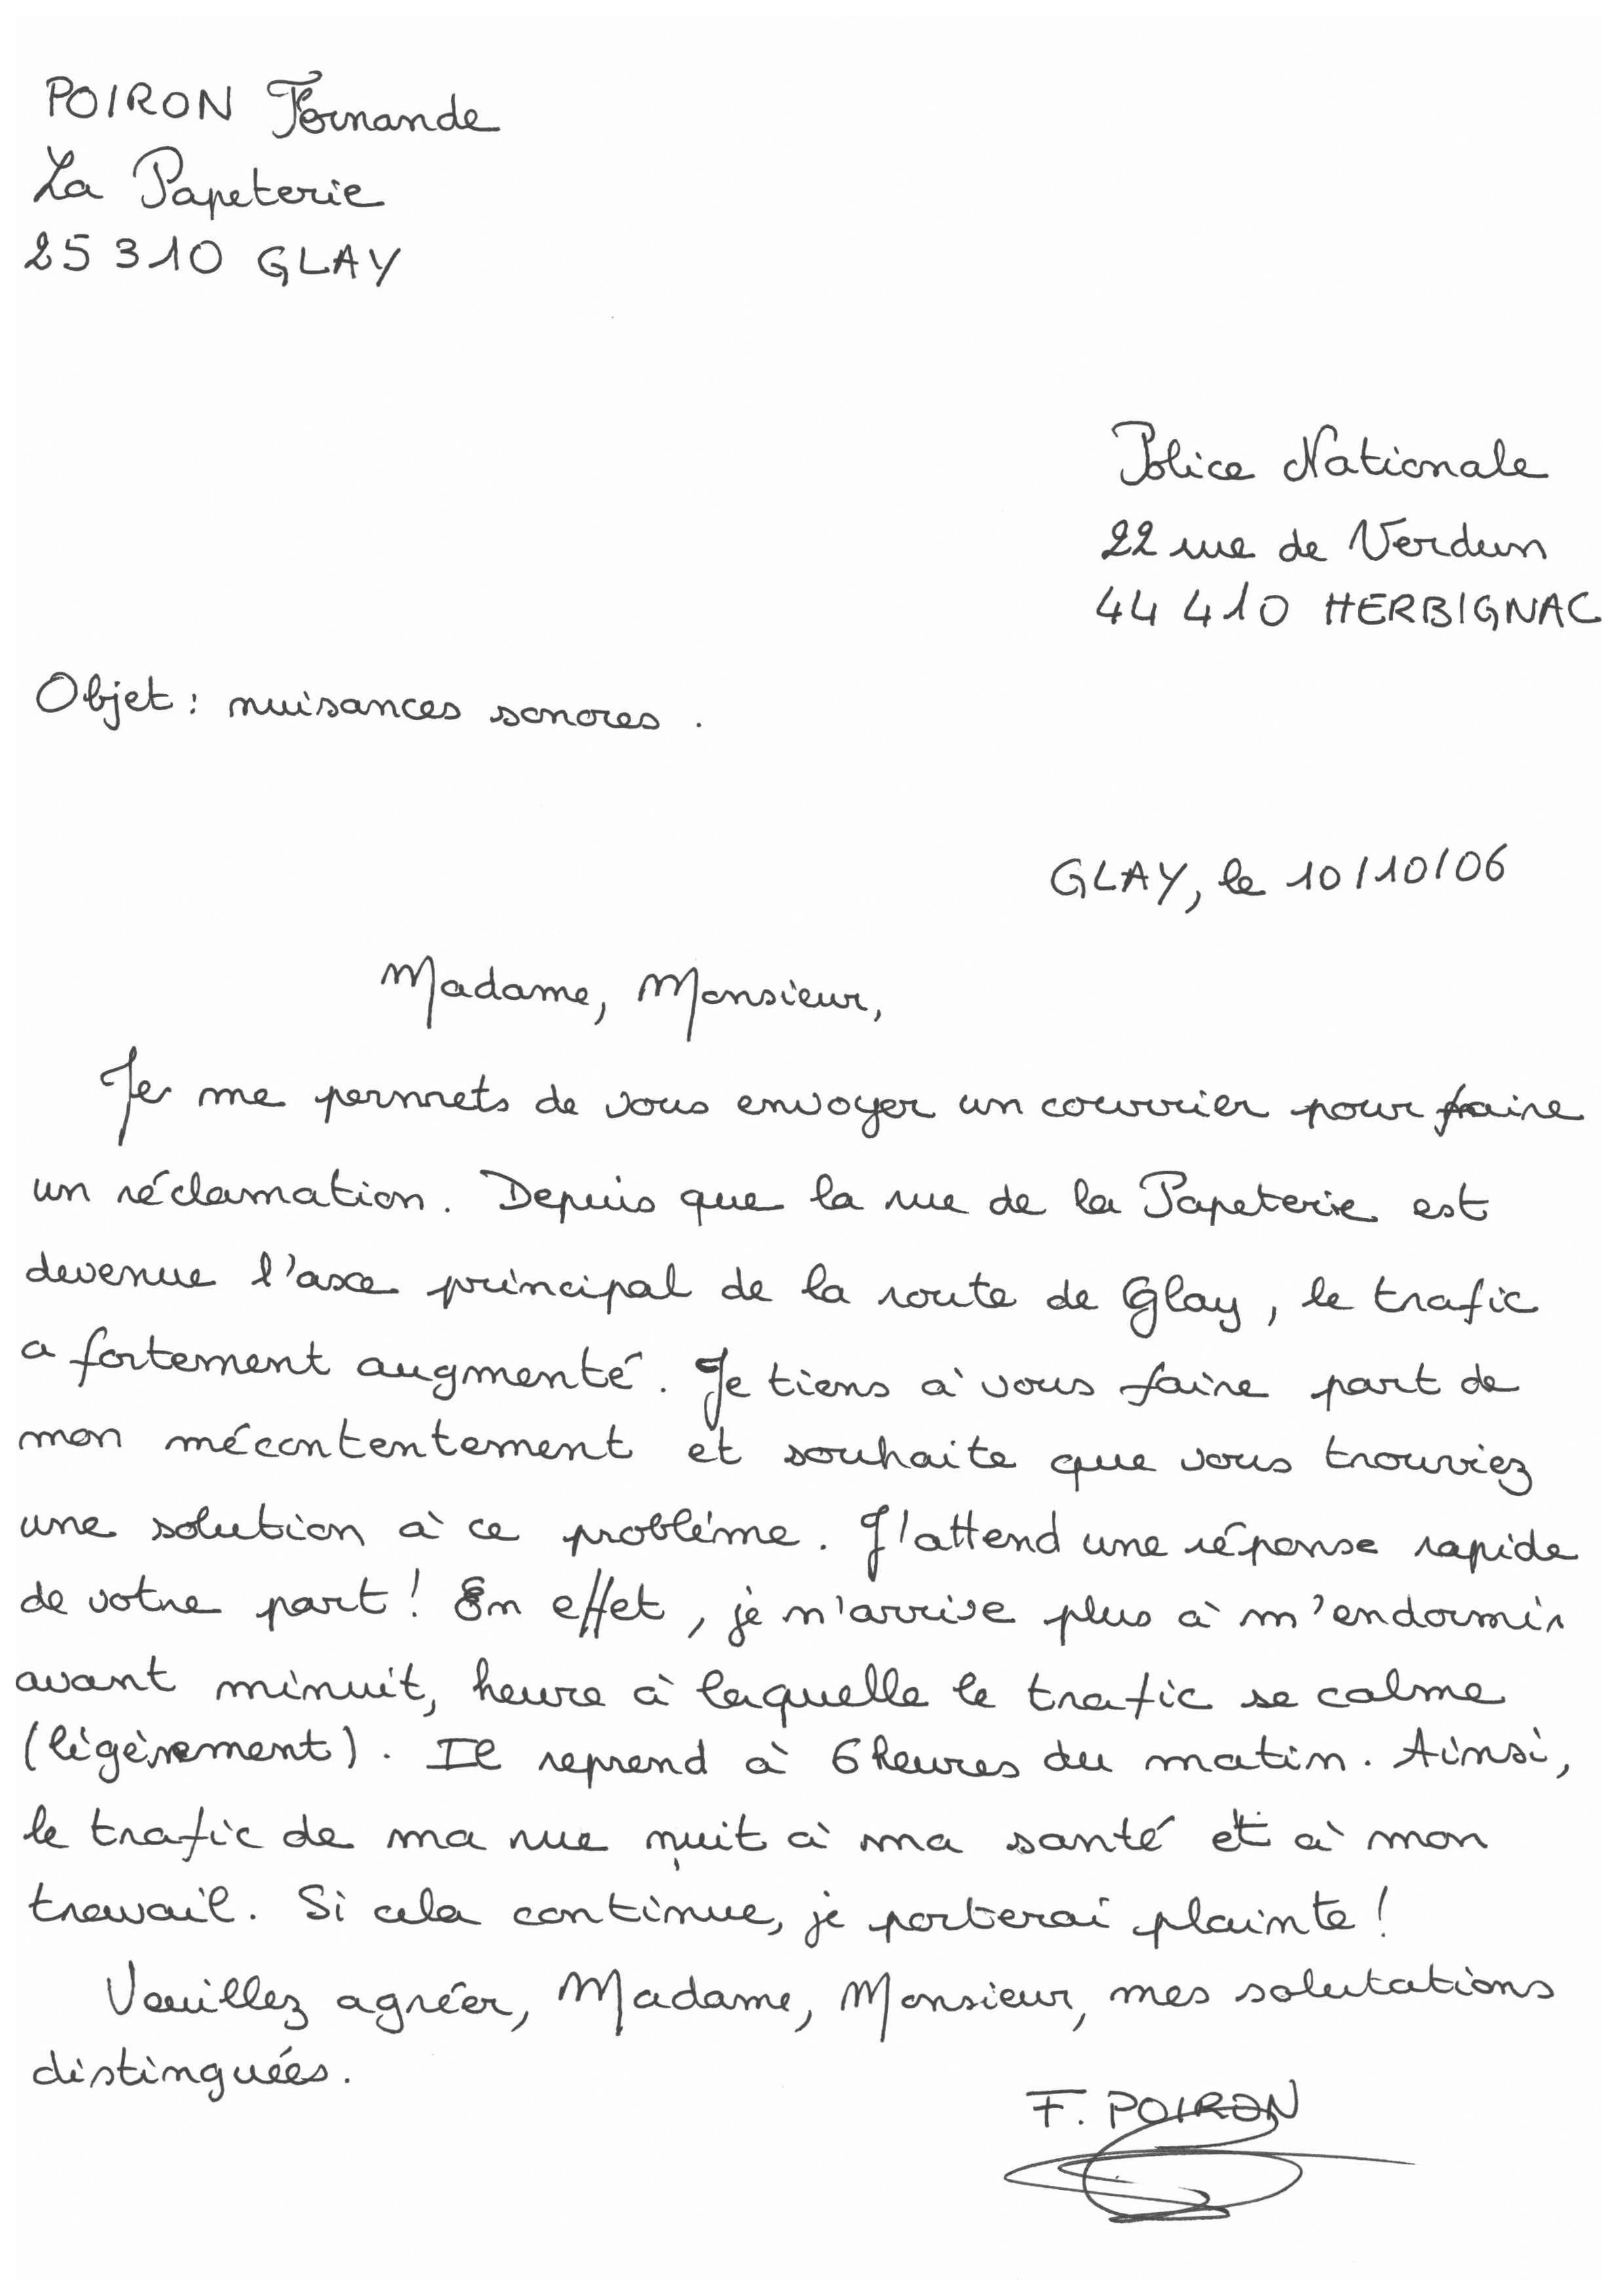 POIRON Fernande
La Papeterie
25310 GLAY
Police Nationale
22 rue de Verdun
44410 HERBIGNAC
Objet : nuisances sonores.
GLAY, le 10/10/06
Madame, Monsieur,
Je me permets de vous envoyer un courrier pour faire
un réclamation. Depuis que la rue de la Papeterie est
devenue l'axe principal de la route de Glay, le trafic
a fortement augmenté. Je tiens à vous faire part de
mon mécontentement et souhaite que vous trouviez
une solution à ce problème. J'attend une réponse rapide
de votre part ! En effet, je n'arrive plus à m'endormir
avant minuit, heure à laquelle le trafic se calme
(légèrement). Il reprend à 6 heures du matin. Ainsi,
le trafic de ma rue nuit à ma santé et à mon
travail. Si cela continue, je porterai plainte !
Veuillez agréer, Madame, Monsieur, mes salutations
distinguées.
F. POIRON